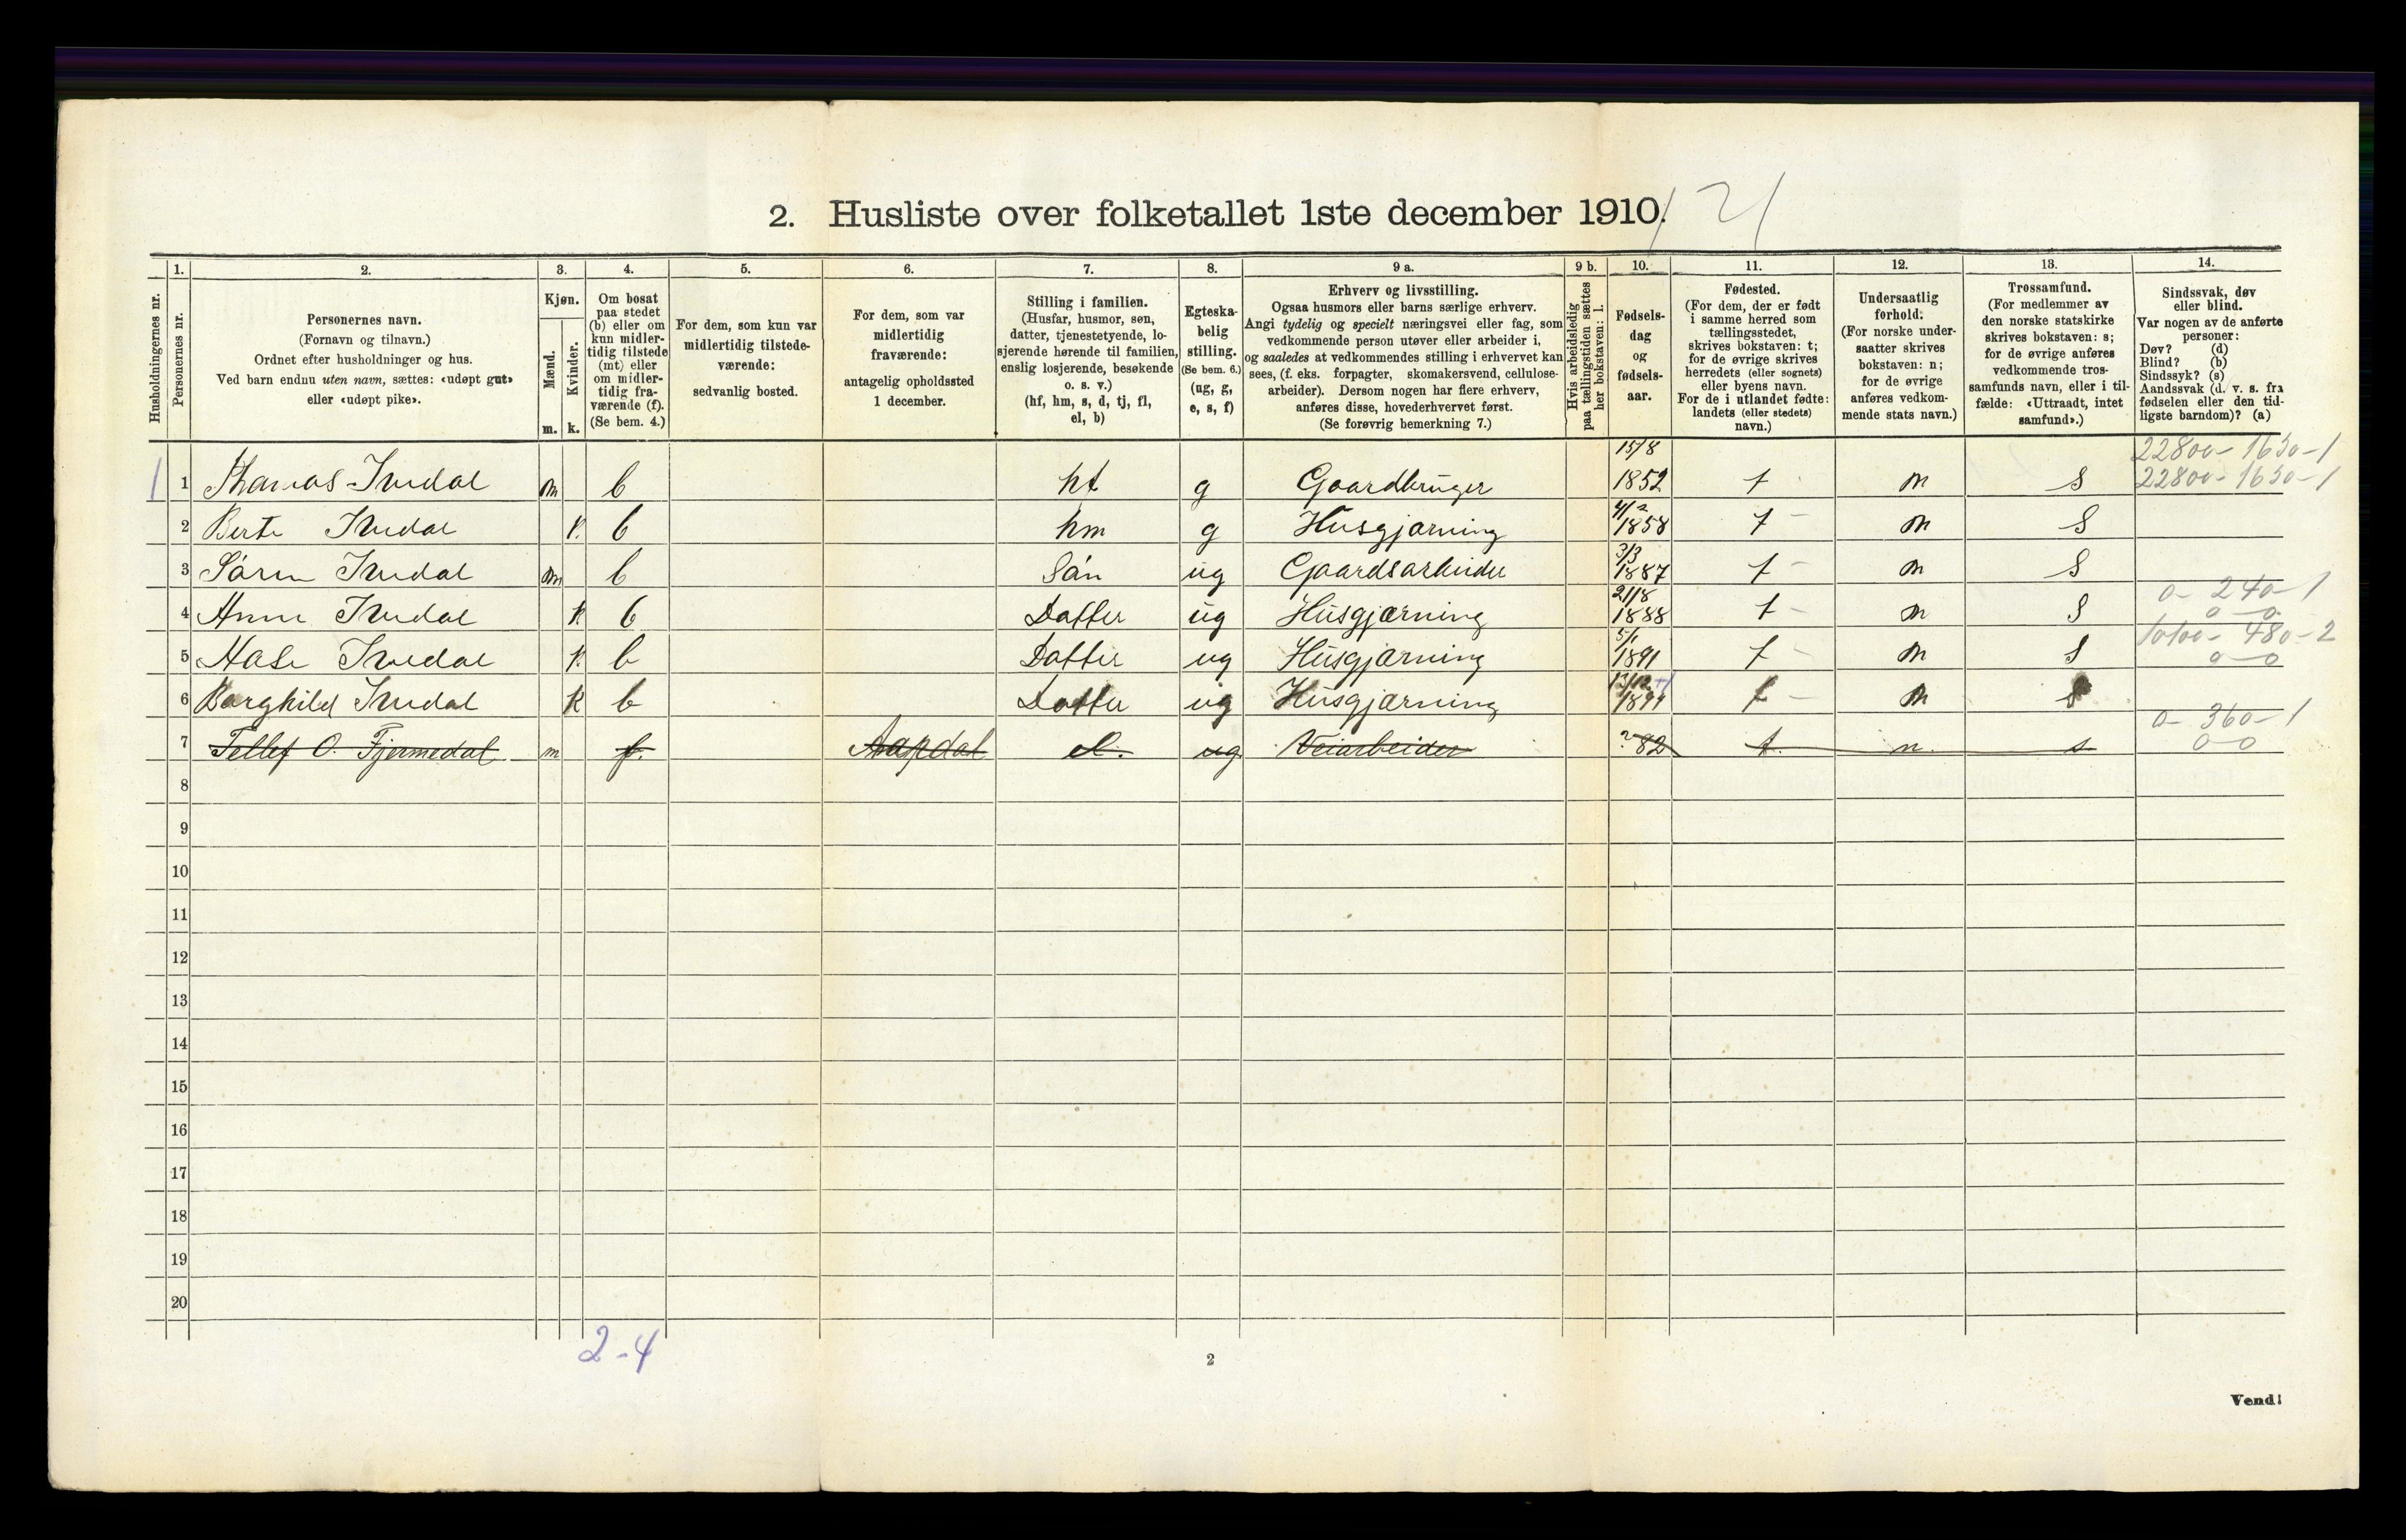 2. Husliste over folketallet 1ste december 1910.
1. 2. 3. 4. 5. 6. 7. 8. 9 a. 9 b. 10. 11. 12. 13. 14.
Husholdningernes nr.
Personernes nr.
Personernes navn.
(Fornavn og tilnavn.)
Ordnet efter husholdninger og hus.
Ved barn endnu uten navn, sættes: «udøpt gut»
eller «udøpt pike».
Kjøn.
Mænd.
Kvinder.
m. k.
Om bosat
paa stedet
(b) eller om
kun midler-
tidig tilstede
(mt) eller
om midler-
tidig fra-
værende (f).
(Se bem. 4.)
For dem, som kun var
midlertidig tilstede-
værende:
sedvanlig bosted.
For dem, som var
midlertidig
fraværende:
antagelig opholdssted
1 december.
Stilling i familien.
(Husfar, husmor, søn,
datter, tjenestetyende, lo-
sjerende hørende til familien,
enslig losjerende, besøkende
o. s. v.)
(hf, hm, s, d, tj, fl,
el, b)
Egteska-
belig
stilling.
(Se bem. 6.)
(ug, g,
e, s, f)
Erhverv og livsstilling.
Ogsaa husmors eller barns særlige erhverv.
Angi tydelig og specielt næringsvei eller fag, som
vedkommende person utøver eller arbeider i,
og saaledes at vedkommendes stilling i erhvervet kan
sees, (f. eks. forpagter, skomakersvend, cellulose-
arbeider). Dersom nogen har flere erhverv,
anføres disse, hovederhvervet først.
(Se forøvrig bemerkning 7.)
Hvis arbeidsledig
paa tællingstiden sættes
her bokstaven: l.
Fødsels-
dag
og
fødsels-
aar.
Fødested.
(For dem, der er født
i samme herred som
tællingsstedet,
skrives bokstaven: t;
for de øvrige skrives
herredets (eller sognets)
eller byens navn.
For de i utlandet fødte:
landets (eller stedets)
navn.)
Undersaatlig
forhold.
(For norske under-
saatter skrives
bokstaven: n;
for de øvrige
anføres vedkom-
mende stats navn.)
Trossamfund.
(For medlemmer av
den norske statskirke
skrives bokstaven: s;
for de øvrige anføres
vedkommende tros-
samfunds navn, eller i til-
fælde: «Uttraadt, intet
samfund».)
Sindssvak, døv
eller blind.
Var nogen av de anførte
personer:
Døv? (d)
Blind? (b)
Sindssyk? (s)
Aandssvak (d. v. s. fra
fødselen eller den tid-
ligste barndom)? (a)
22800 - 1630 - 1
1 1 Thomas Ivedal m b hf g Gaardbruger 15/8 1852 t n S 22800 - 1630 - 1
2 Berte Ivedal k b hm g Husgjærning 4/2 1858 t n S
3 Søren Ivedal m b Søn ug Gaardsarbeider 3/3 1887 t n S
0 - 240 - 1
4 Anne Ivedal k b Datter ug Husgjærning 21/8 1888 t n S 0 - 0
5 Aase Ivedal k b Datter ug Husgjærning 5/1 1891 t n S 0 - 0
6 Borghild Ivedal k b Datter ug Husgjærning t n s
0 - 360 - 1
7 Tellef O. Fjermedal m f. ug Veiarbeider ? 82 t. n. s 0 0
8
9
10
11
12
13
14
15
16
17
18
19
20
2 - 4
2
Vend!